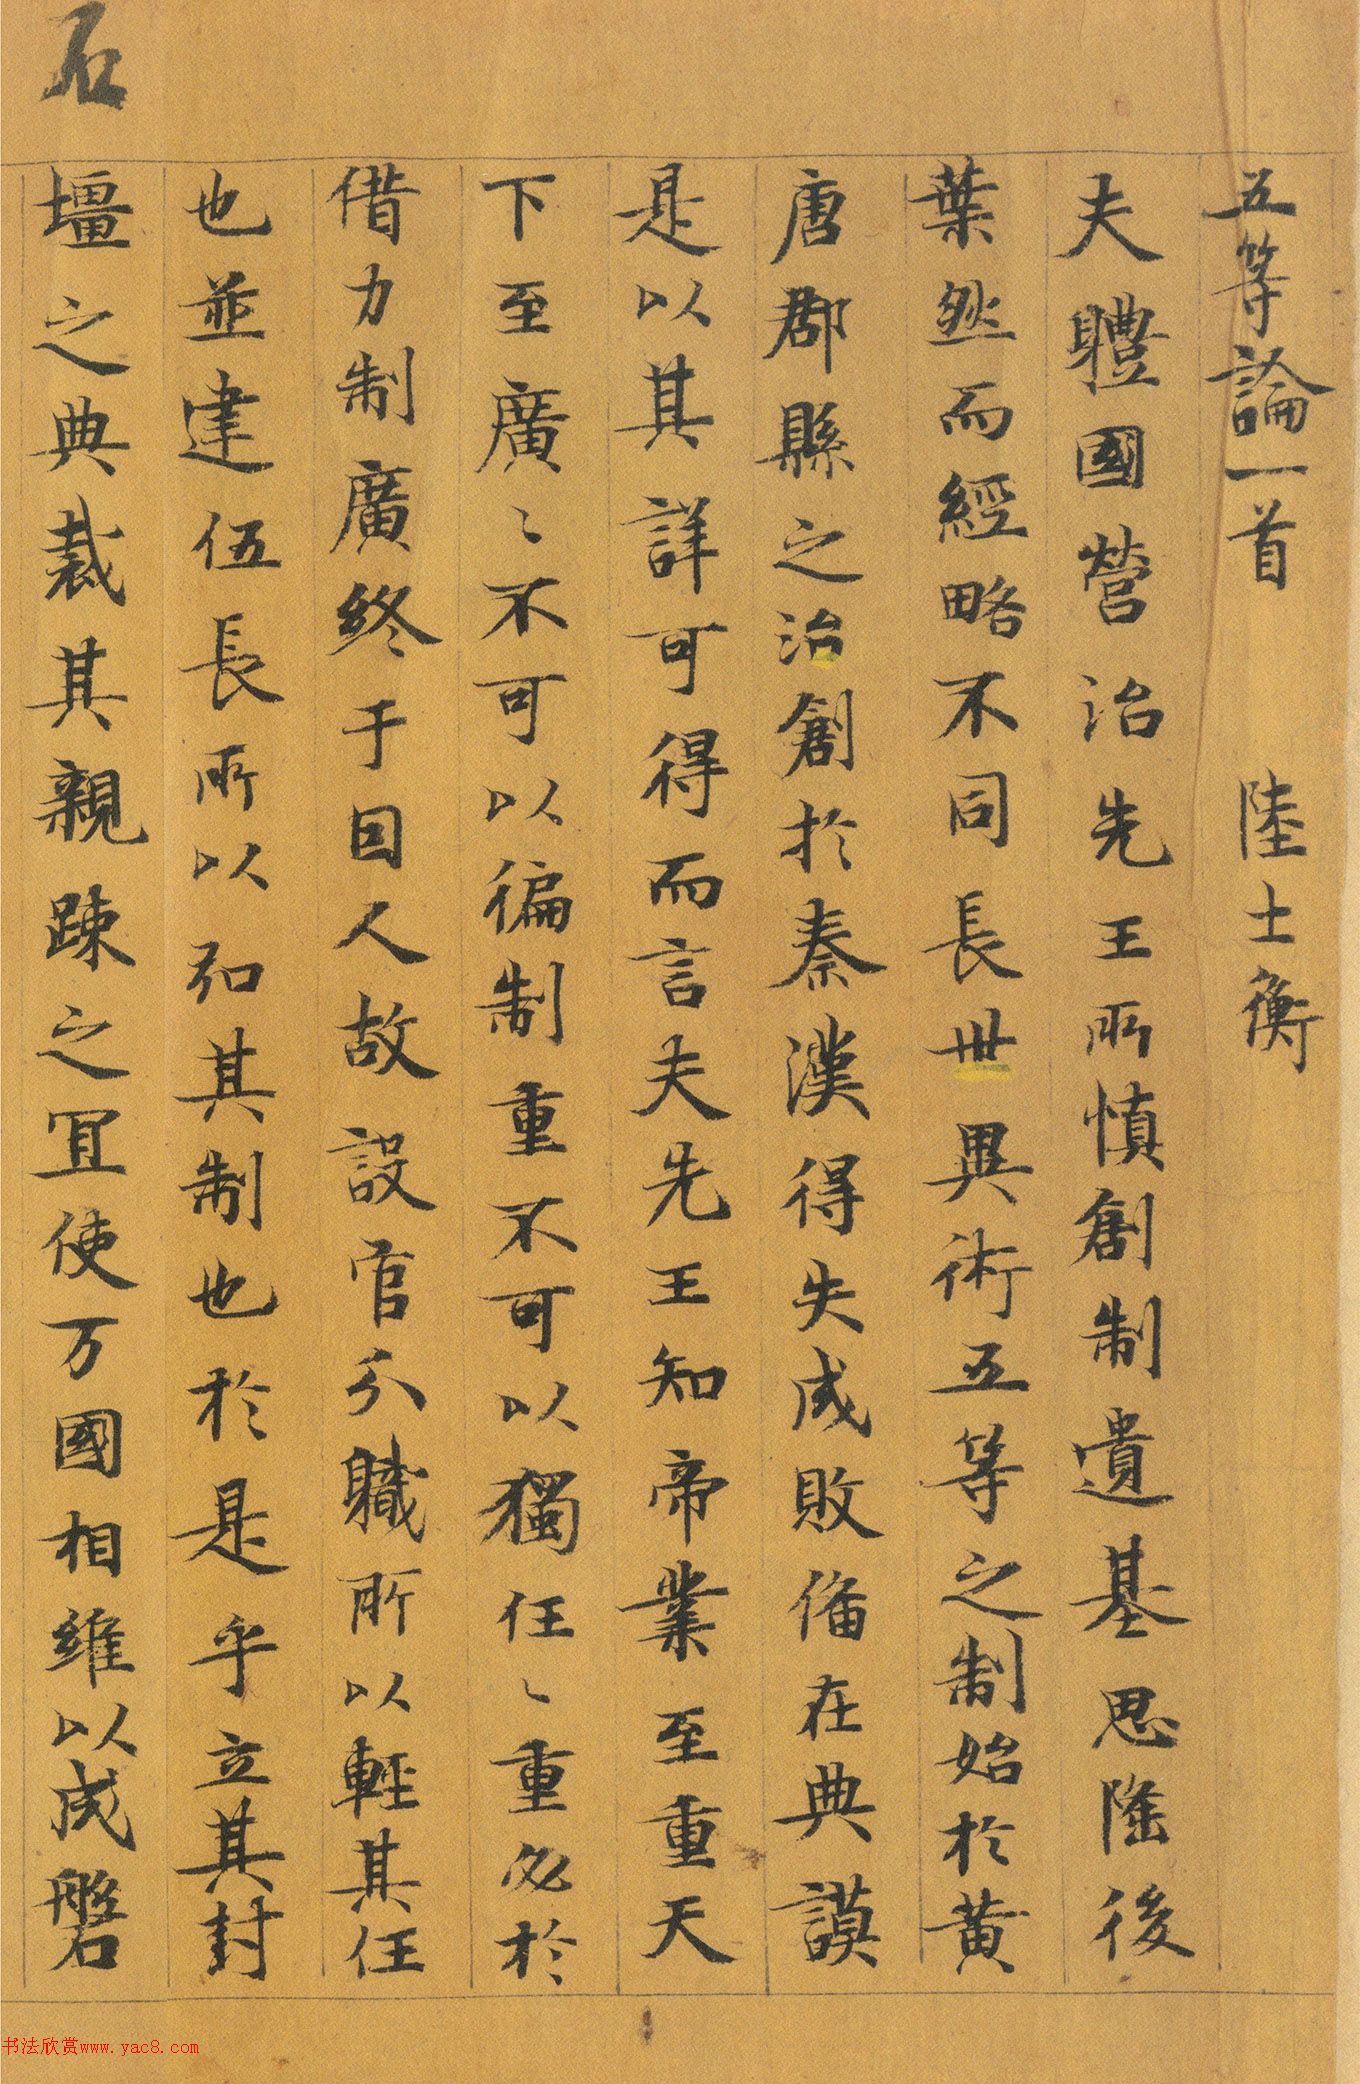 五等論一首　陸士衡
夫軆國營治先王所慎創制遺基思隆後
葉然而經略不同長世異術五等之制始於黃
唐郡縣之治創於秦漢得失成敗俻在典謨
是以其詳可得而言夫先王知帝業至重天
下至廣〻不可以徧制重不可以獨任〻重必於
借力制廣終于因人故設官分軄所以輕其任
也並建伍長所以弘其制也於是乎立其封
壃之典裁其親踈之冝使万國相維以成磐
石
书法欣赏www.yac8.com